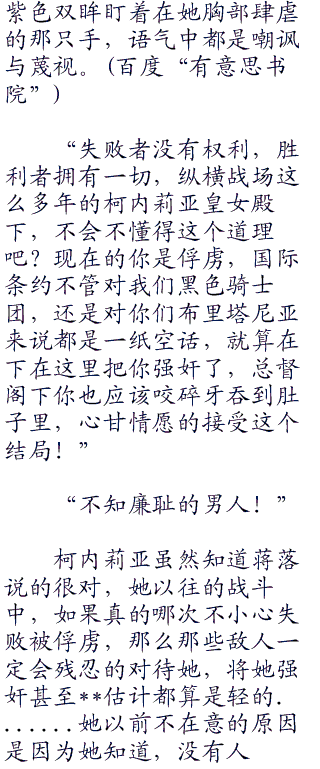 紫色双眸盯着在她胸部肆虐
的那只手，语气中都是嘲讽
与蔑视。(百度“有意思书
院”)
“失败者没有权利，胜
利者拥有一切，纵横战场这
么多年的柯内莉亚皇女殿
下，不会不懂得这个道理
吧？现在的你是俘虏，国际
条约不管对我们黑色骑士
团，还是对你们布里塔尼亚
来说都是一纸空话，就算在
下在这里把你强奸了，总督
阁下你也应该咬碎牙吞到肚
子里，心甘情愿的接受这个
结局！”
“不知廉耻的男人！”
柯内莉亚虽然知道蒋落
说的很对，她以往的战斗
中，如果真的哪次不小心失
败被俘虏，那么那些敌人一
定会残忍的对待她，将她强
奸甚至**估计都算是轻的.
......她以前不在意的原因
是因为她知道，没有人